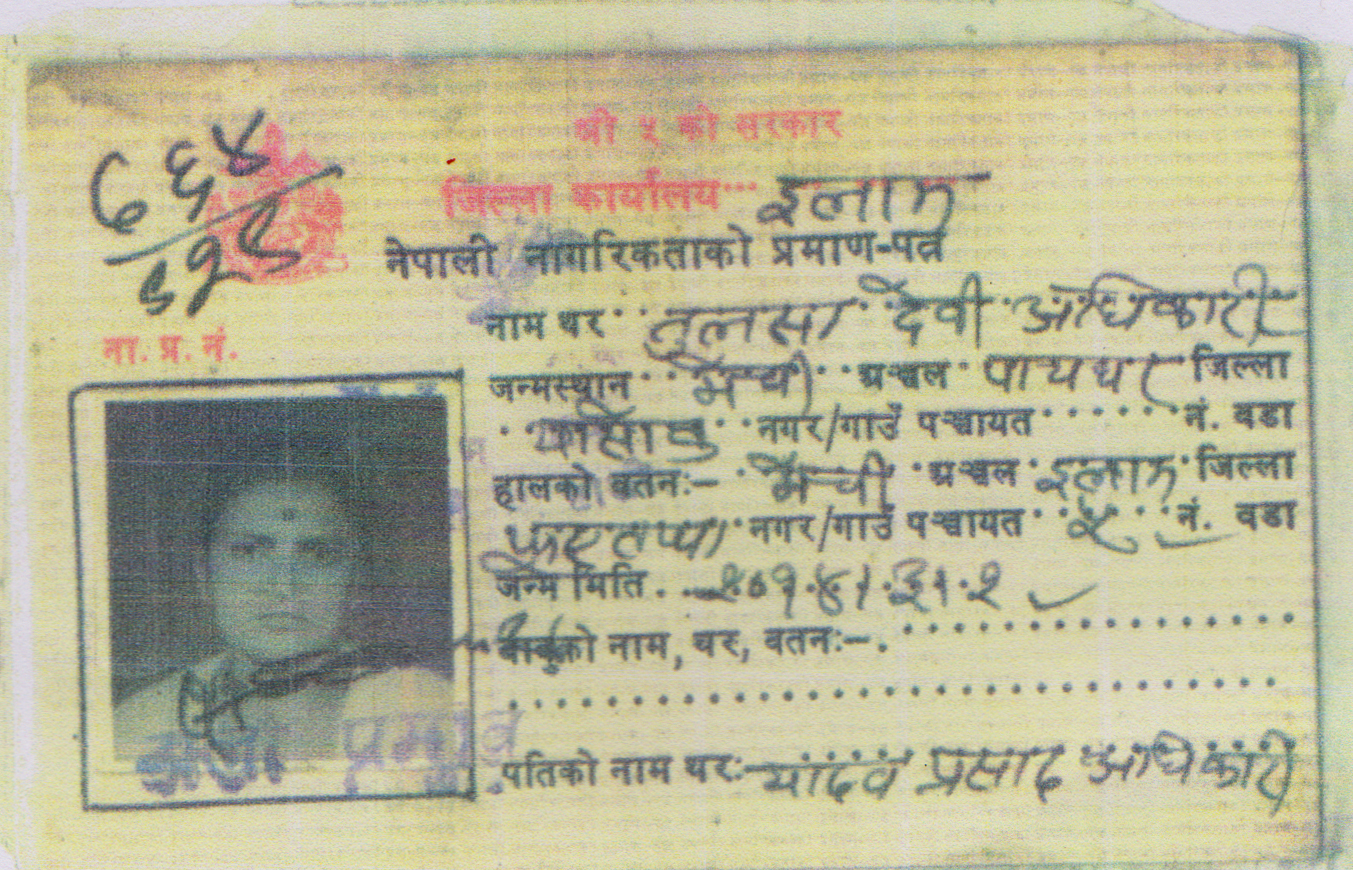 श्री ५ को सरकार
जिल्ला कार्यालय इलाम
नेपाली नागरिकताको प्रमाण-पत्र
ना. प्र. नं.
नाम थर तुलसा देवी अधिकारी
जन्मस्थान मेची अञ्चल पाचथर जिल्ला
नगर/गाउँ पञ्चायत नं. वडा
हालको वतन:- मेची अञ्चल इलाम जिल्ला
नगर/गाउँ पञ्चायत ५ नं. वडा
जन्म मिति
बाबुको नाम, थर, वतन:-
पतिको नाम थर:- यादव प्रसाद अधिकारी